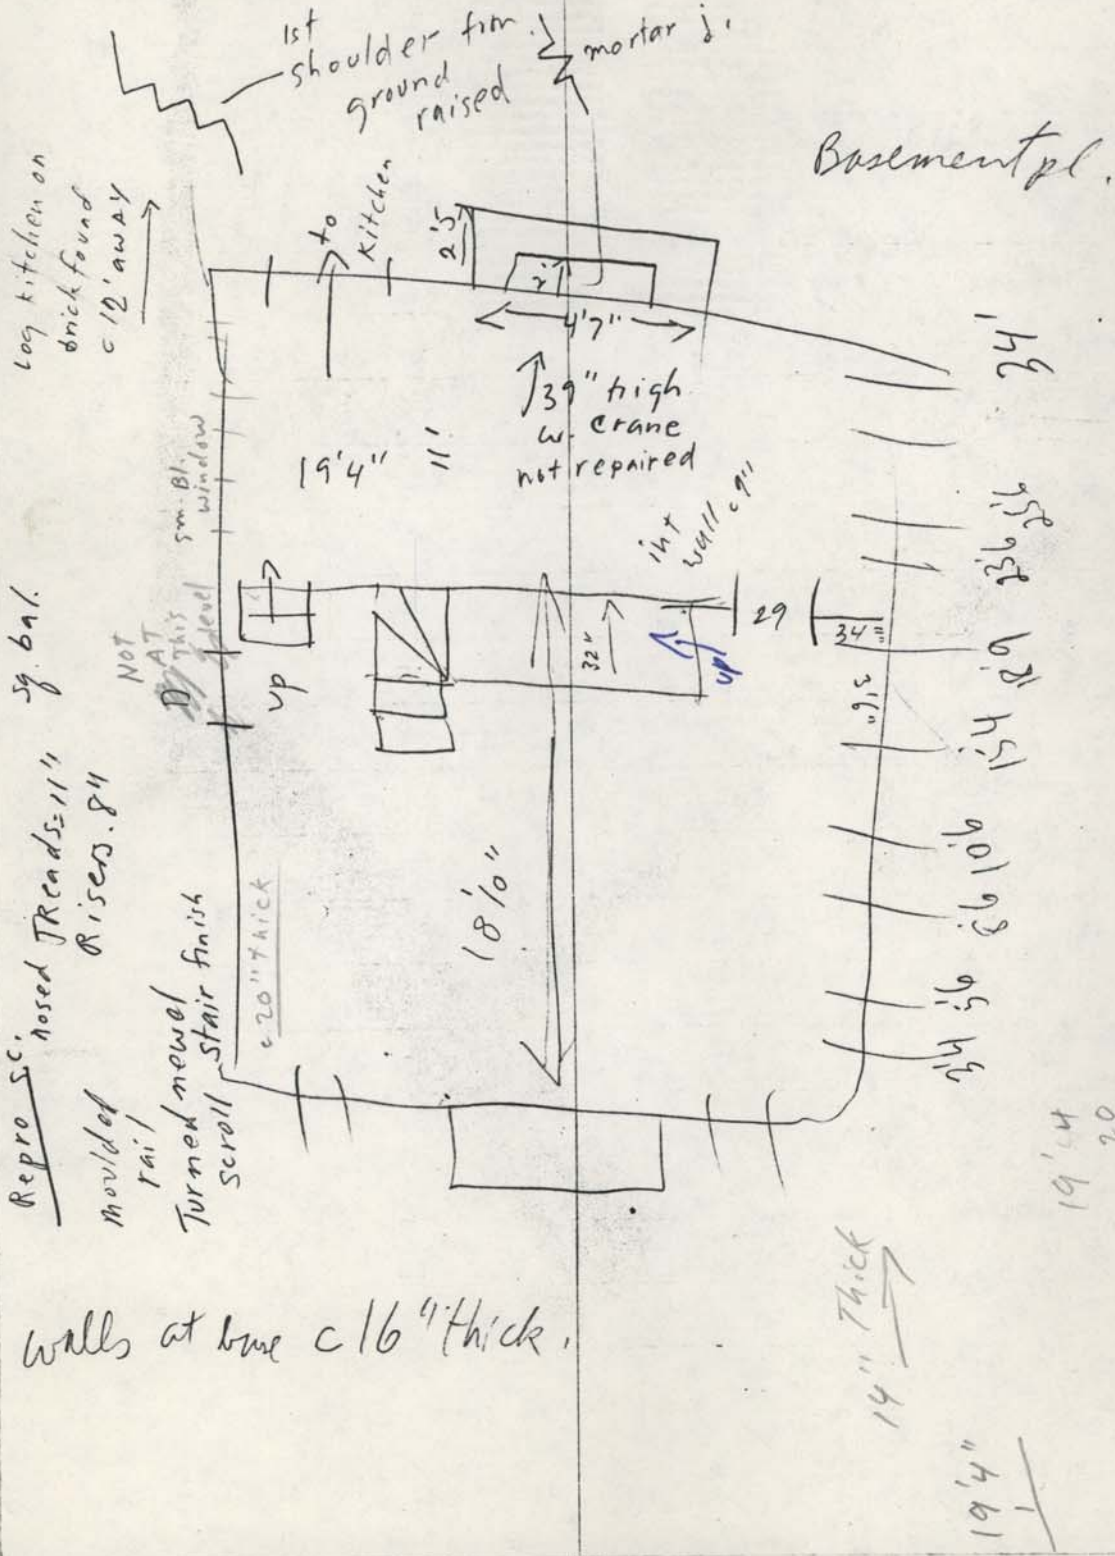 1st
shoulder from
ground
raised
mortar j.
Basement pl.
Log kitchen on
brick found
c 12' away
to
Kitchen
2'5
2'
4'7"
39" high
w. crane
not repaired
19'4"
11'
sm. Bl.
window
int
wall c 9"
29
34"
3'6"
32"
up
up
NOT
AT
This
level
sq. bal.
Repro s.c.
nosed Treads=11"
Risers. 8"
moulded
rail
Turned newel
scroll stair finish
c 20" thick
18'10"
34'
25'6
23'9
18'9
15'4
10'9
8'9
5'9
3'4
19'4
20
14" Thick
19'4"
walls at base c 16" thick.